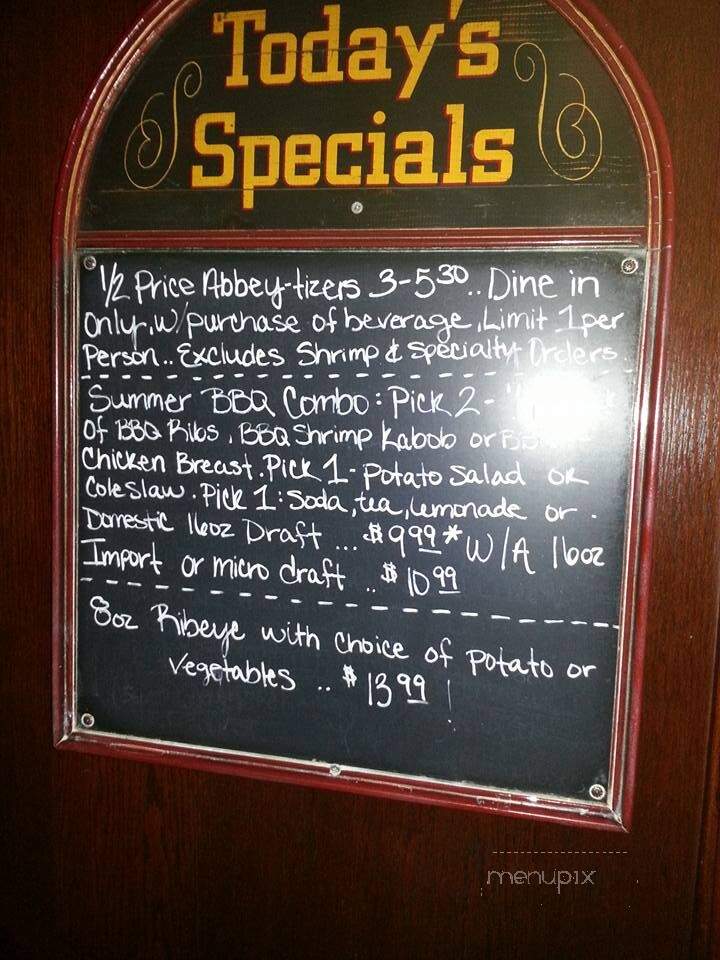 Today's
Specials
1/2 Price Abbey-tizers 3-5³⁰.. Dine in
only, w/purchase of beverage, Limit 1 per
Person.. Excludes Shrimp & Specialty Orders.
Summer BBQ Combo: Pick 2 -
of BBQ Ribs, BBQ Shrimp Kabob or
Chicken Breast. Pick 1 - Potato Salad or
Coleslaw. Pick 1: Soda, tea, lemonade or
Domestic 16oz Draft ... $9 99 * W/A 16oz
Import or micro draft .. $10 99
8oz Ribeye with choice of potato or
vegetables .. $13 99 !
menupix